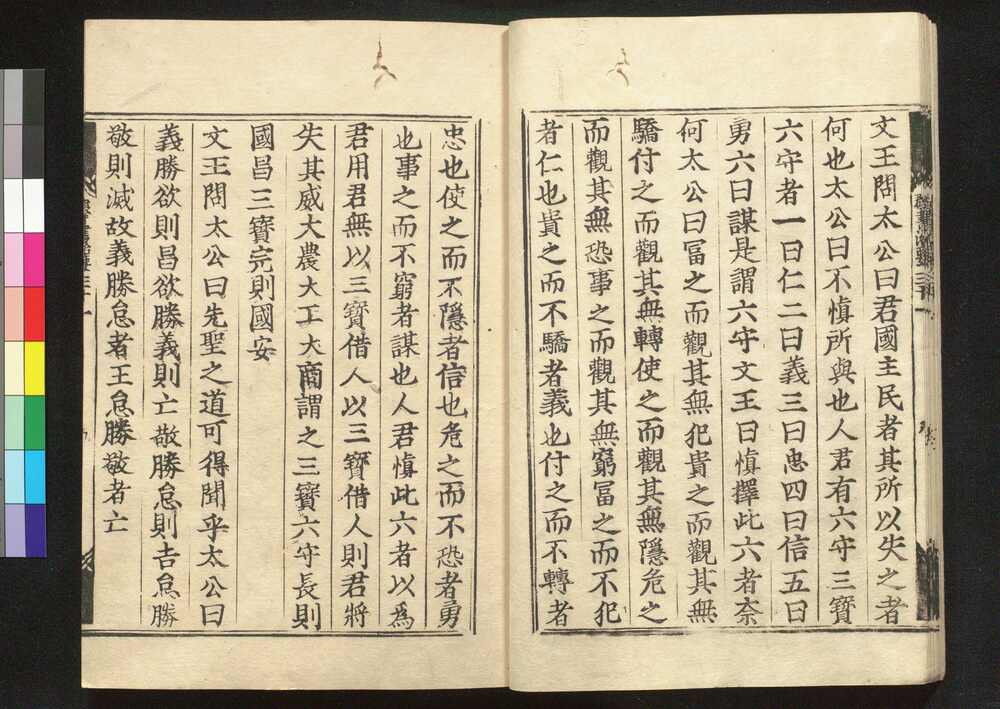 文王問太公曰君國主民者其所以失之者
何也太公曰不慎所與也人君有六守三寶
六守者一曰仁二曰義三曰忠四曰信五曰
勇六曰謀是謂六守文王曰慎擇此六者奈
何太公曰冨之而觀其無犯貴之而觀其無
驕付之而觀其無轉使之而觀其無隱危之
而觀其無恐事之而觀其無窮冨之而不犯
者仁也貴之而不驕者義也付之而不轉者
忠也使之而不隱者信也危之而不恐者勇
也事之而不窮者謀也人君慎此六者以爲
君用君無以三寳借人以三寳借人則君將
失其威大農大工大商謂之三寳六守長則
國昌三寳完則國安
文王問太公曰先聖之道可得聞乎太公曰
義勝欲則昌欲勝義則亡敬勝怠則吉怠勝
敬則滅故義勝怠者王怠勝敬者亡